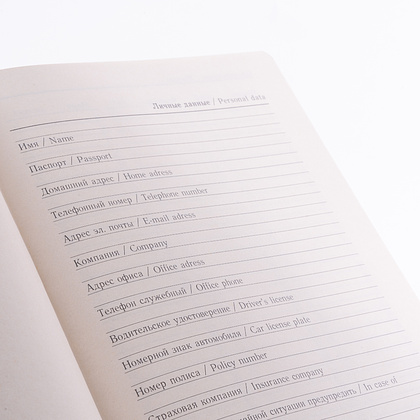 Личные данные / Personal data
Имя / Name
Паспорт / Passport
Домашний адрес / Home adress
Телефонный номер / Telephone number
Адрес эл. почты / E-mail adress
Компания / Company
Адрес офиса / Office adress
Телефон служебный / Office phone
Водительское удостоверение / Driver's license
Номерной знак автомобиля / Car license plate
Номер полиса / Policy number
Страховая компания / Insurance company
ситуации предупредить / In case of